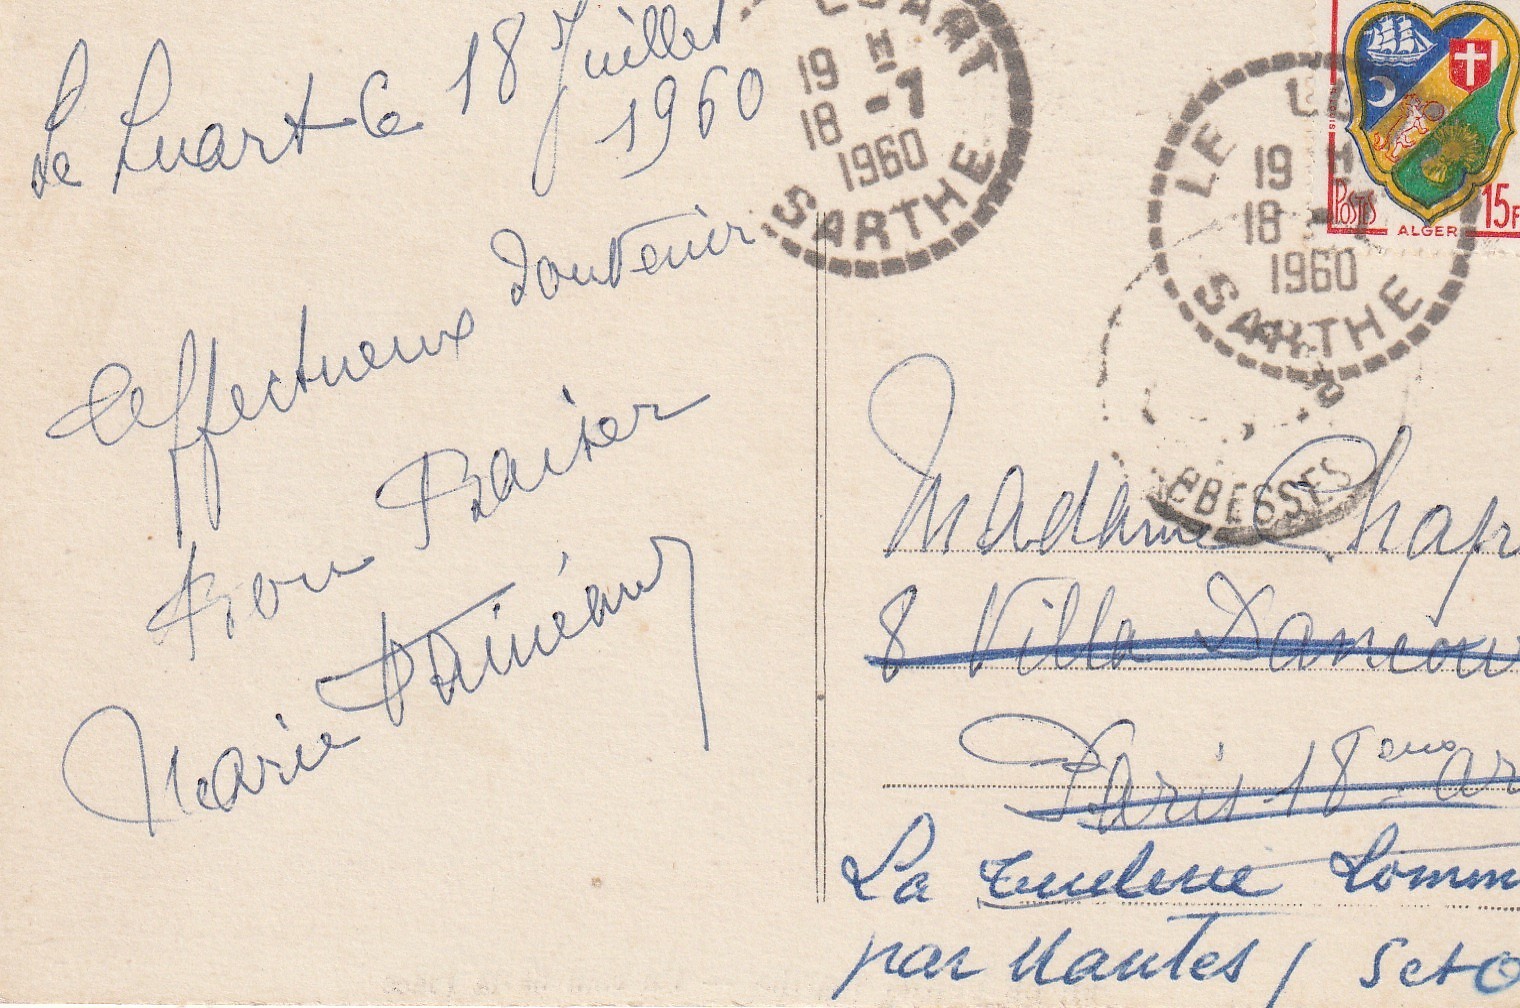 Le Luart le 18 Juillet
1960
Affectueux Souvenir
Bon Baiser
Marie
LUART
19 H
18 -7
1960
SARTHE
LE LU
19 H
18 -7
1960
SARTHE
BBESSES
POSTES
ALGER
15F
Madame Chap
8 Villa Dancour
Paris 18eme ar
La Tuilerie Lomm
par Mantes / S et O